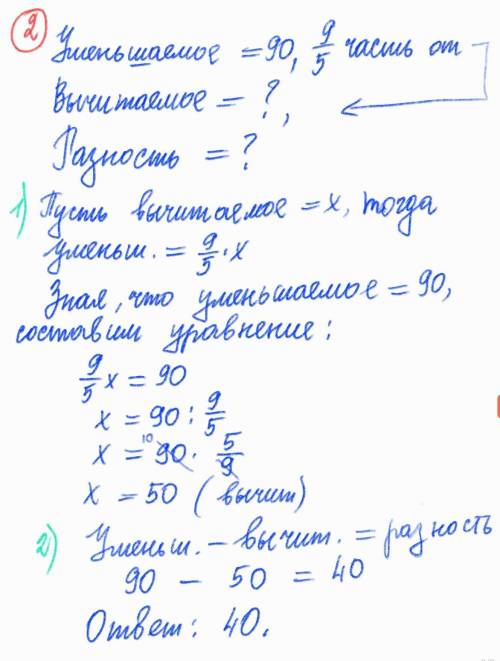 2
Уменьшаемое = 90, 9/5 часть от
Вычитаемое = ?,
Разность = ?
1) Пусть вычитаемое = x, тогда
уменьш. = 9/5 · x
Зная, что уменьшаемое = 90,
составим уравнение:
9/5 x = 90
x = 90 : 9/5
x = 90 · 5/9
10
x = 50 (вычит)
2) Уменьш. – вычит. = разность
90 – 50 = 40
Ответ: 40.